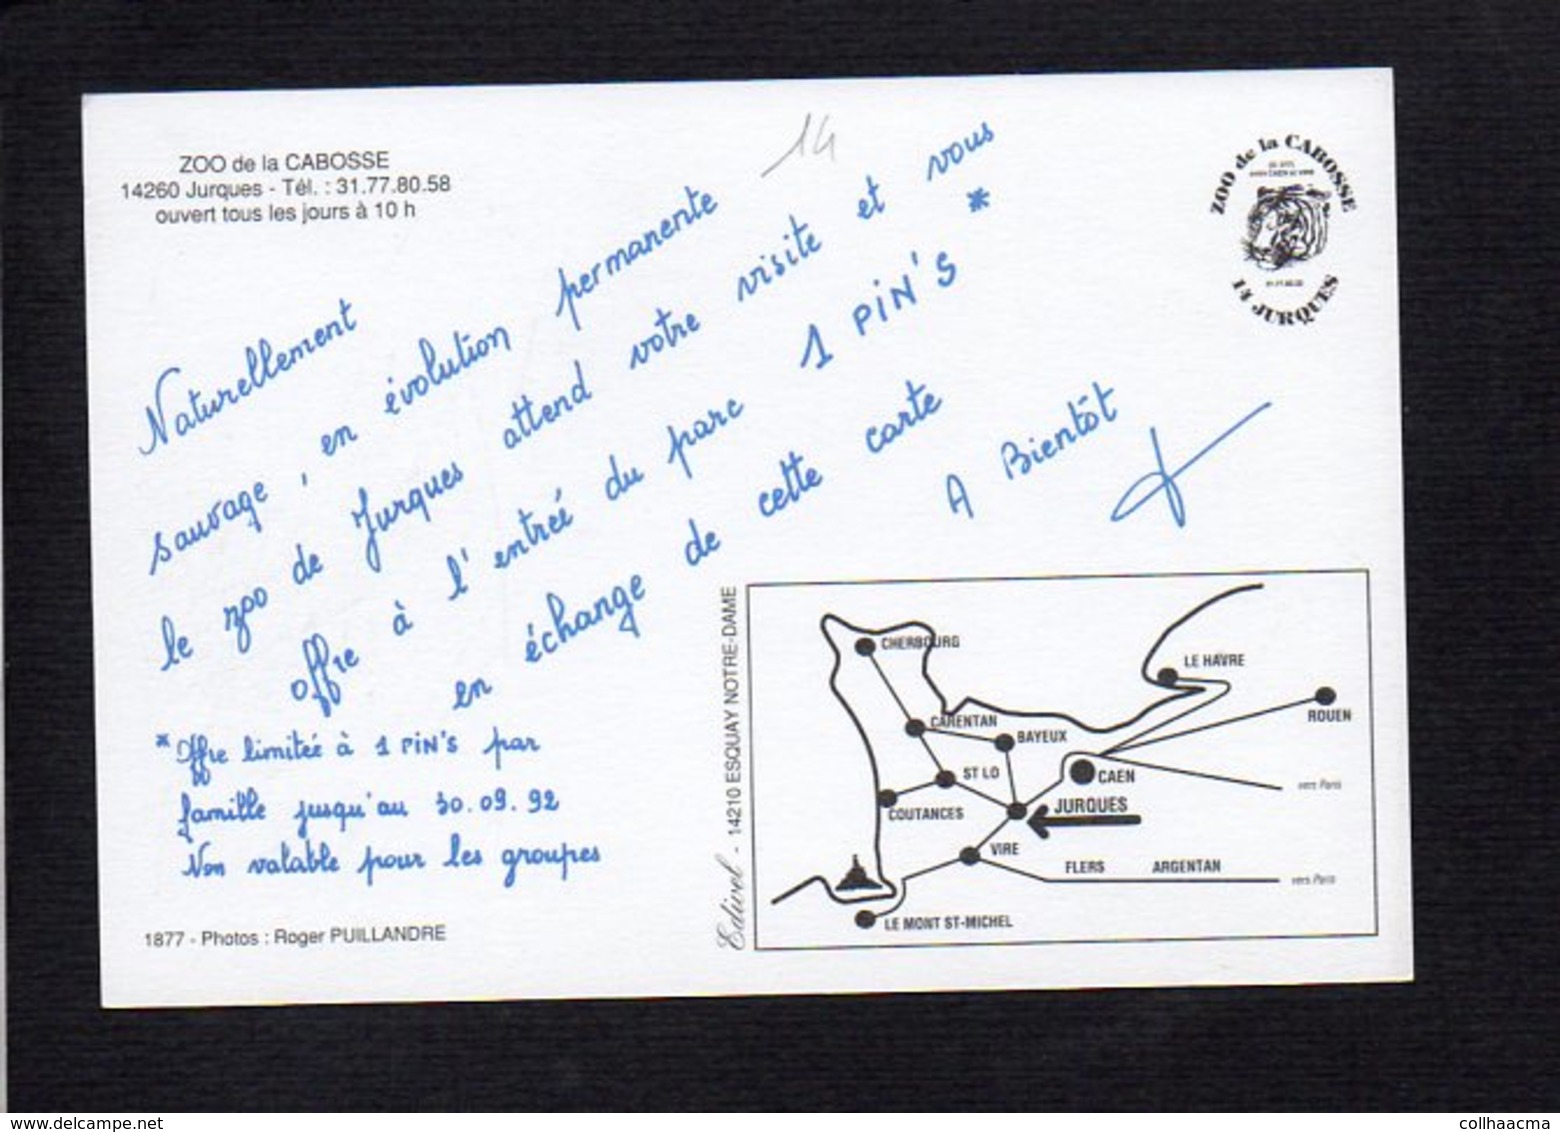 ZOO de la CABOSSE
14260 Jurques - Tél. : 31.77.80.58
ouvert tous les jours à 10 h
14
ZOO de la CABOSSE
14 JURQUES
Naturellement
sauvage, en évolution permanente
le zoo de Jurques attend votre visite et vous
offre à l'entrée du parc 1 PIN'S *
en échange de cette carte
A Bientôt
* Offre limitée à 1 PIN'S par
famille jusqu'au 30.09.92
Non valable pour les groupes
1877 - Photos : Roger PUILLANDRE
Edivel - 14210 ESQUAY NOTRE-DAME
CHERBOURG
LE HAVRE
ROUEN
CARENTAN
BAYEUX
ST LO
CAEN
vers Paris
COUTANCES
JURQUES
VIRE
FLERS
ARGENTAN
vers Paris
LE MONT ST-MICHEL
collhaacma